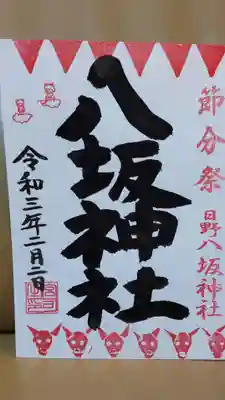 節分祭
日野八坂神社
八坂神社
令和三年二月二日